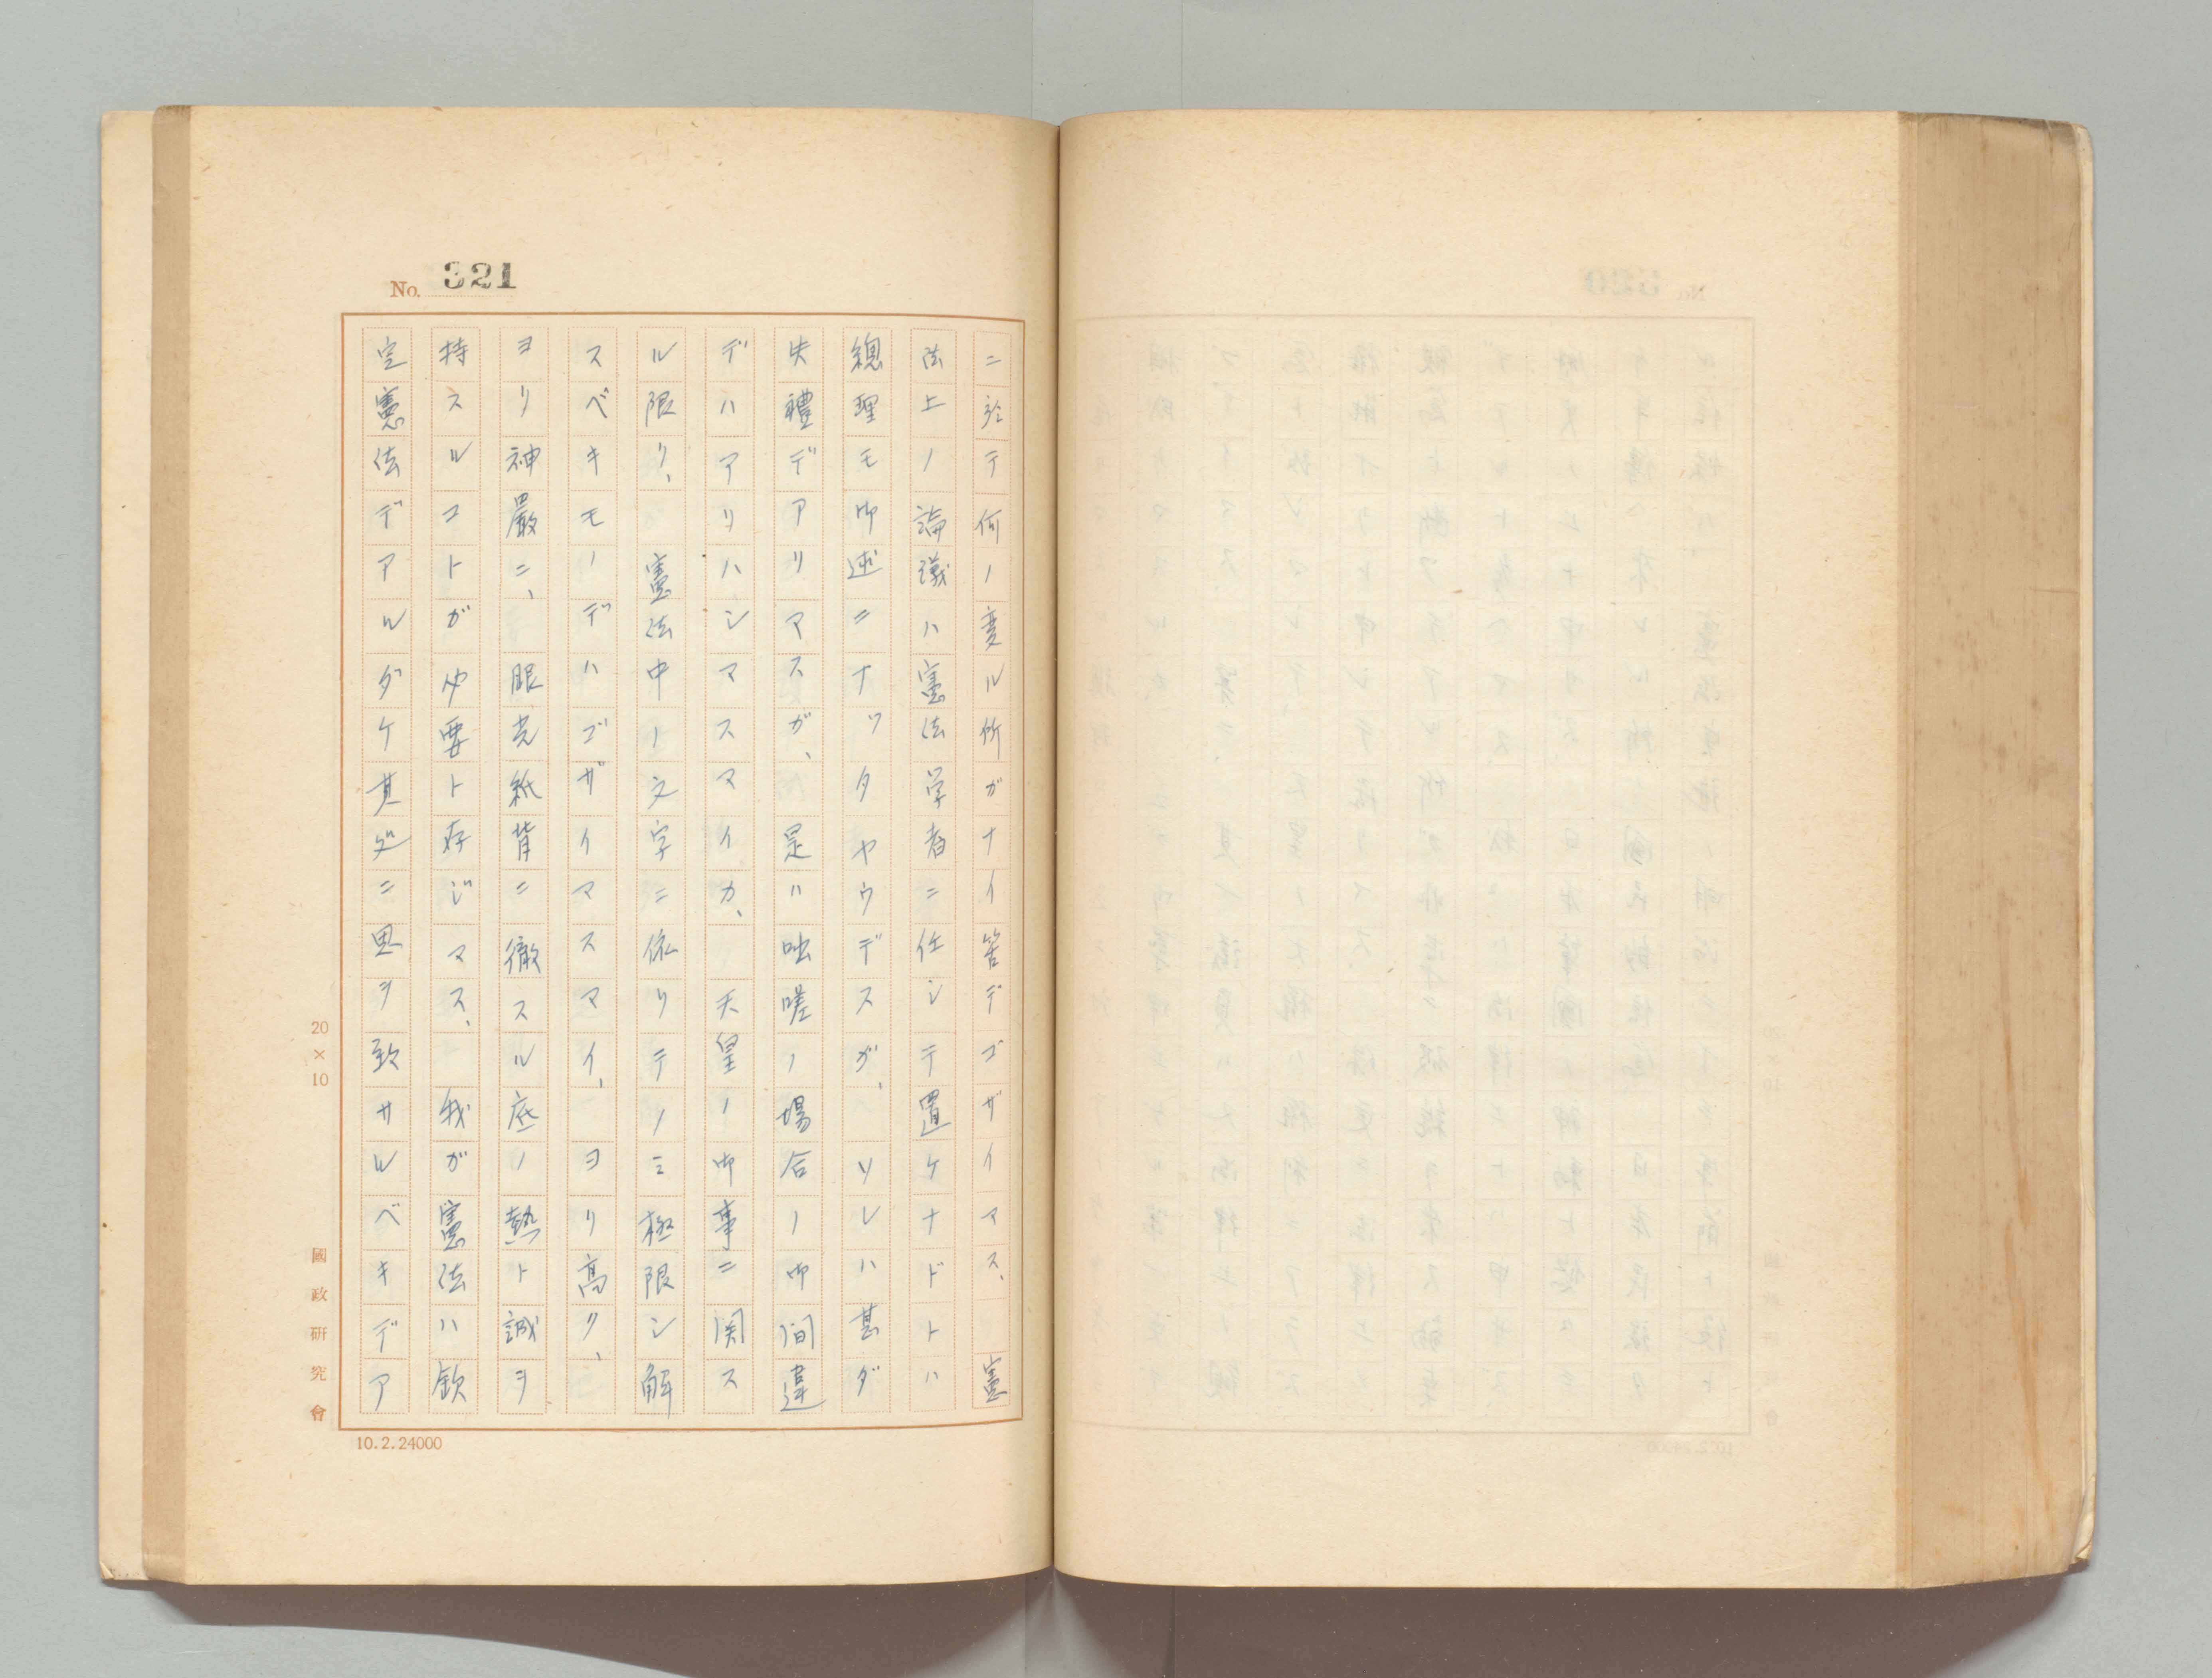 No. 321
ニ於テ何ノ変ル所ガナイ筈デゴザイマス、憲
法上ノ論議ハ憲法学者ニ任シテ置ケナドトハ
總理モ御述ニナツタヤウデスガ、ソレハ甚ダ
失禮デアリマスガ、是ハ咄嗟ノ場合ノ御間違
デハアリハシマスマイカ、天皇ノ御事ニ関ス
ル限リ、憲法中ノ文字ニ依リテノミ極限シ解
スベキモノデハゴザイマスマイ、ヨリ高ク、
ヨリ神嚴ニ、眼光紙背ニ徹スル底ノ熱ト誠ヲ
持スルコトガ必要ト存ジマス、我ガ憲法ハ欽
定憲法デアルダケ其処ニ思ヲ致サルベキデア
20×10
國政研究會
10.2.24000